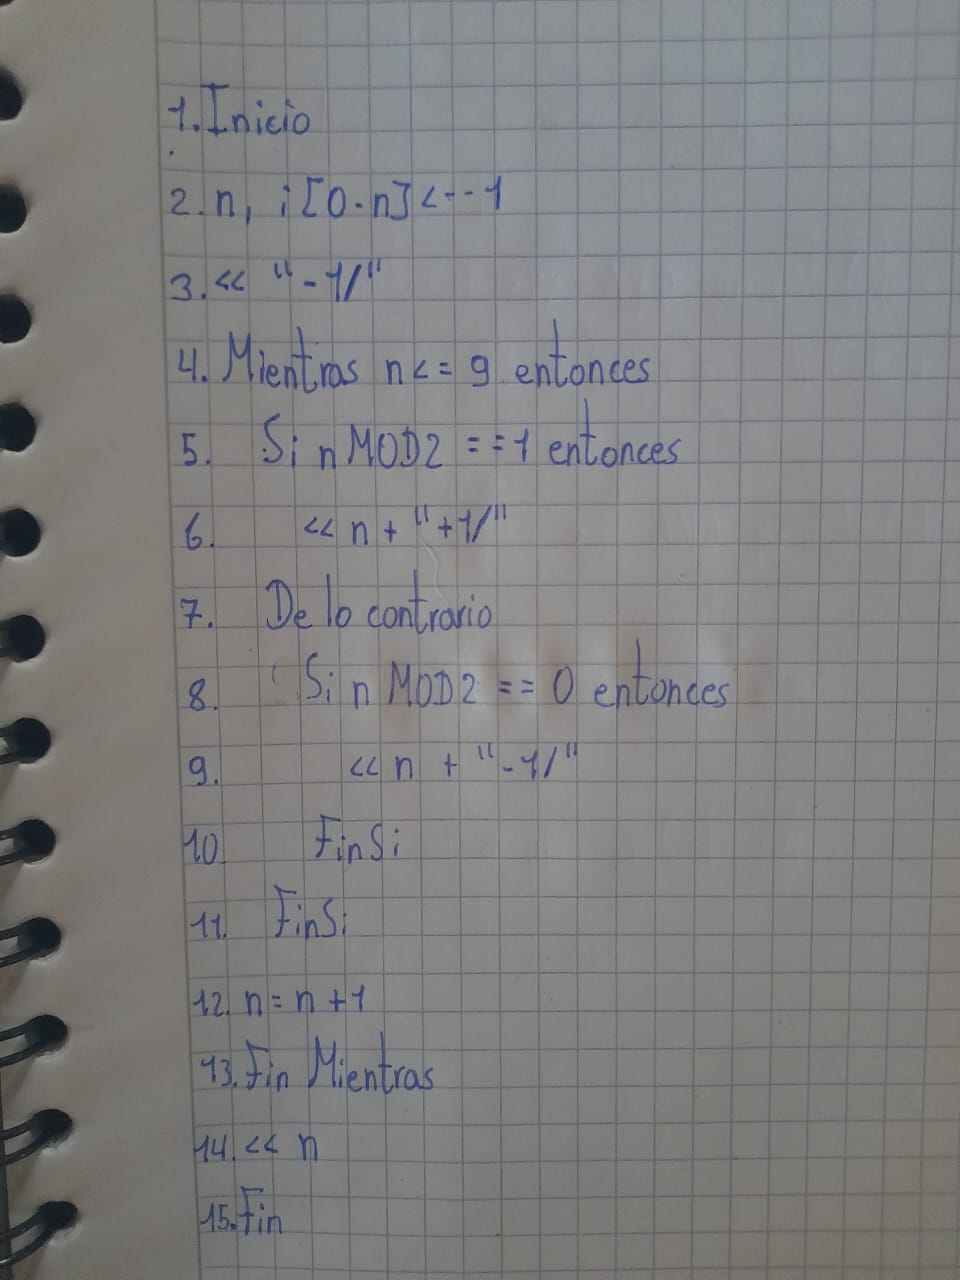 1. Inicio
2. n, i [0-n] <-- 1
3. << "-1/"
4. Mientras n <= 9 entonces
5. Si n MOD2 == 1 entonces
6. << n + "+1/"
7. De lo contrario
8. Si n MOD2 == 0 entonces
9. << n + "-1/"
10 FinSi
11. FinSi
12. n = n + 1
13. Fin Mientras
14. << n
15. Fin